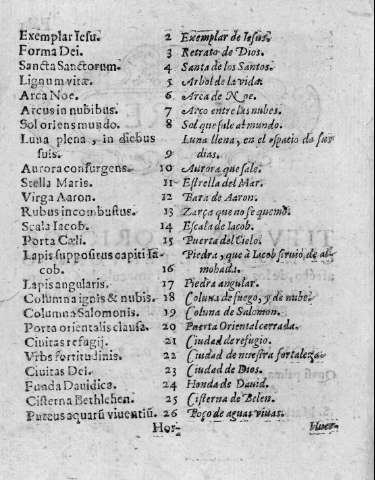 Exemplar Iesu. 2 Exemplar de Iesus.
Forma Dei. 3 Retrato de Dios.
Sancta Sanctorum. 4 Santa de los Santos.
Lignum vitæ. 5 Arbol de la vida.
Arca Noe. 6 Arca de Noe.
Arcus in nubibus. 7 Arco entre las nubes.
Sol oriens mundo. 8 Sol que sale al mundo.
Luna plena, in diebus Luna llena, en el espacio de sus
suis. 9 dias.
Aurora consurgens. 10 Aurora que sale.
Stella Maris. 11 Estrella del Mar.
Virga Aaron. 12 Bara de Aaron.
Rubus incombustus. 13 Zarça que no se quemò.
Scala Iacob. 14 Escala de Iacob.
Porta Cæli. 15 Puerta del Cielo.
Lapis suppositus capiti Ia- Piedra, que à Iacob siruiò de al-
cob. 16 mohada.
Lapis angularis. 17 Piedra angular.
Columna ignis & nubis. 18 Coluna de fuego, y de nube.
Columna Salomonis. 19 Coluna de Salomon.
Porta orientalis clausa. 20 Puerta Oriental cerrada.
Ciuitas refugij. 21 Ciudad de refugio.
Vrbs fortitudinis. 22 Ciudad de nuestra fortaleza.
Ciuitas Dei. 23 Ciudad de Dios.
Funda Dauidica. 24 Honda de Dauid.
Cisterna Bethlehen. 25 Cisterna de Belen.
Puteus aquarũ viuentiũ. 26 Poço de aguas viuas.
Hor- Huer-